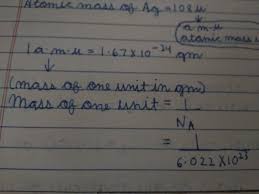 Atomic mass of Ag = 108u
(a·m·u
atomic mass
1 a·m·u = 1.67×10⁻²⁴ gm
(mass of one unit in gm)
Mass of one unit = 1
N_A
= 1
6.022×10²³